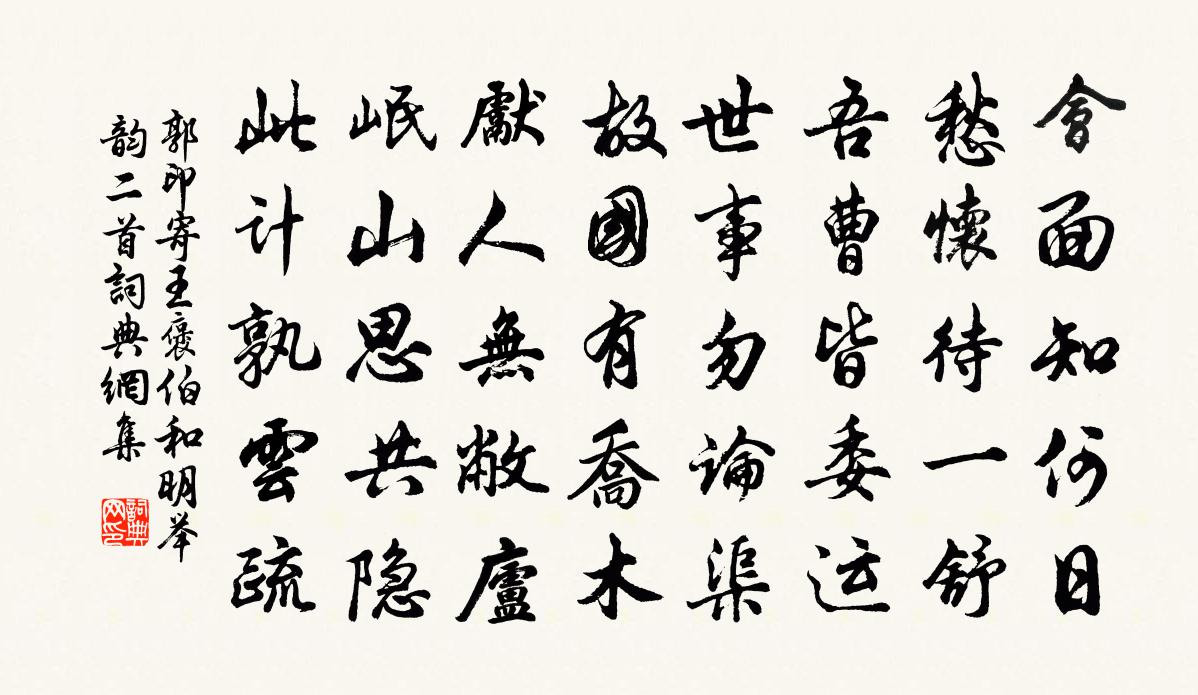 會面知何日
愁懷待一舒
吾曹皆委运
世事勿論渠
故國有喬木
獻人無敝廬
岷山思共隐
此计孰雲疏
郭印寄王褒伯和明举
韵二首詞典網集
詞典
网印